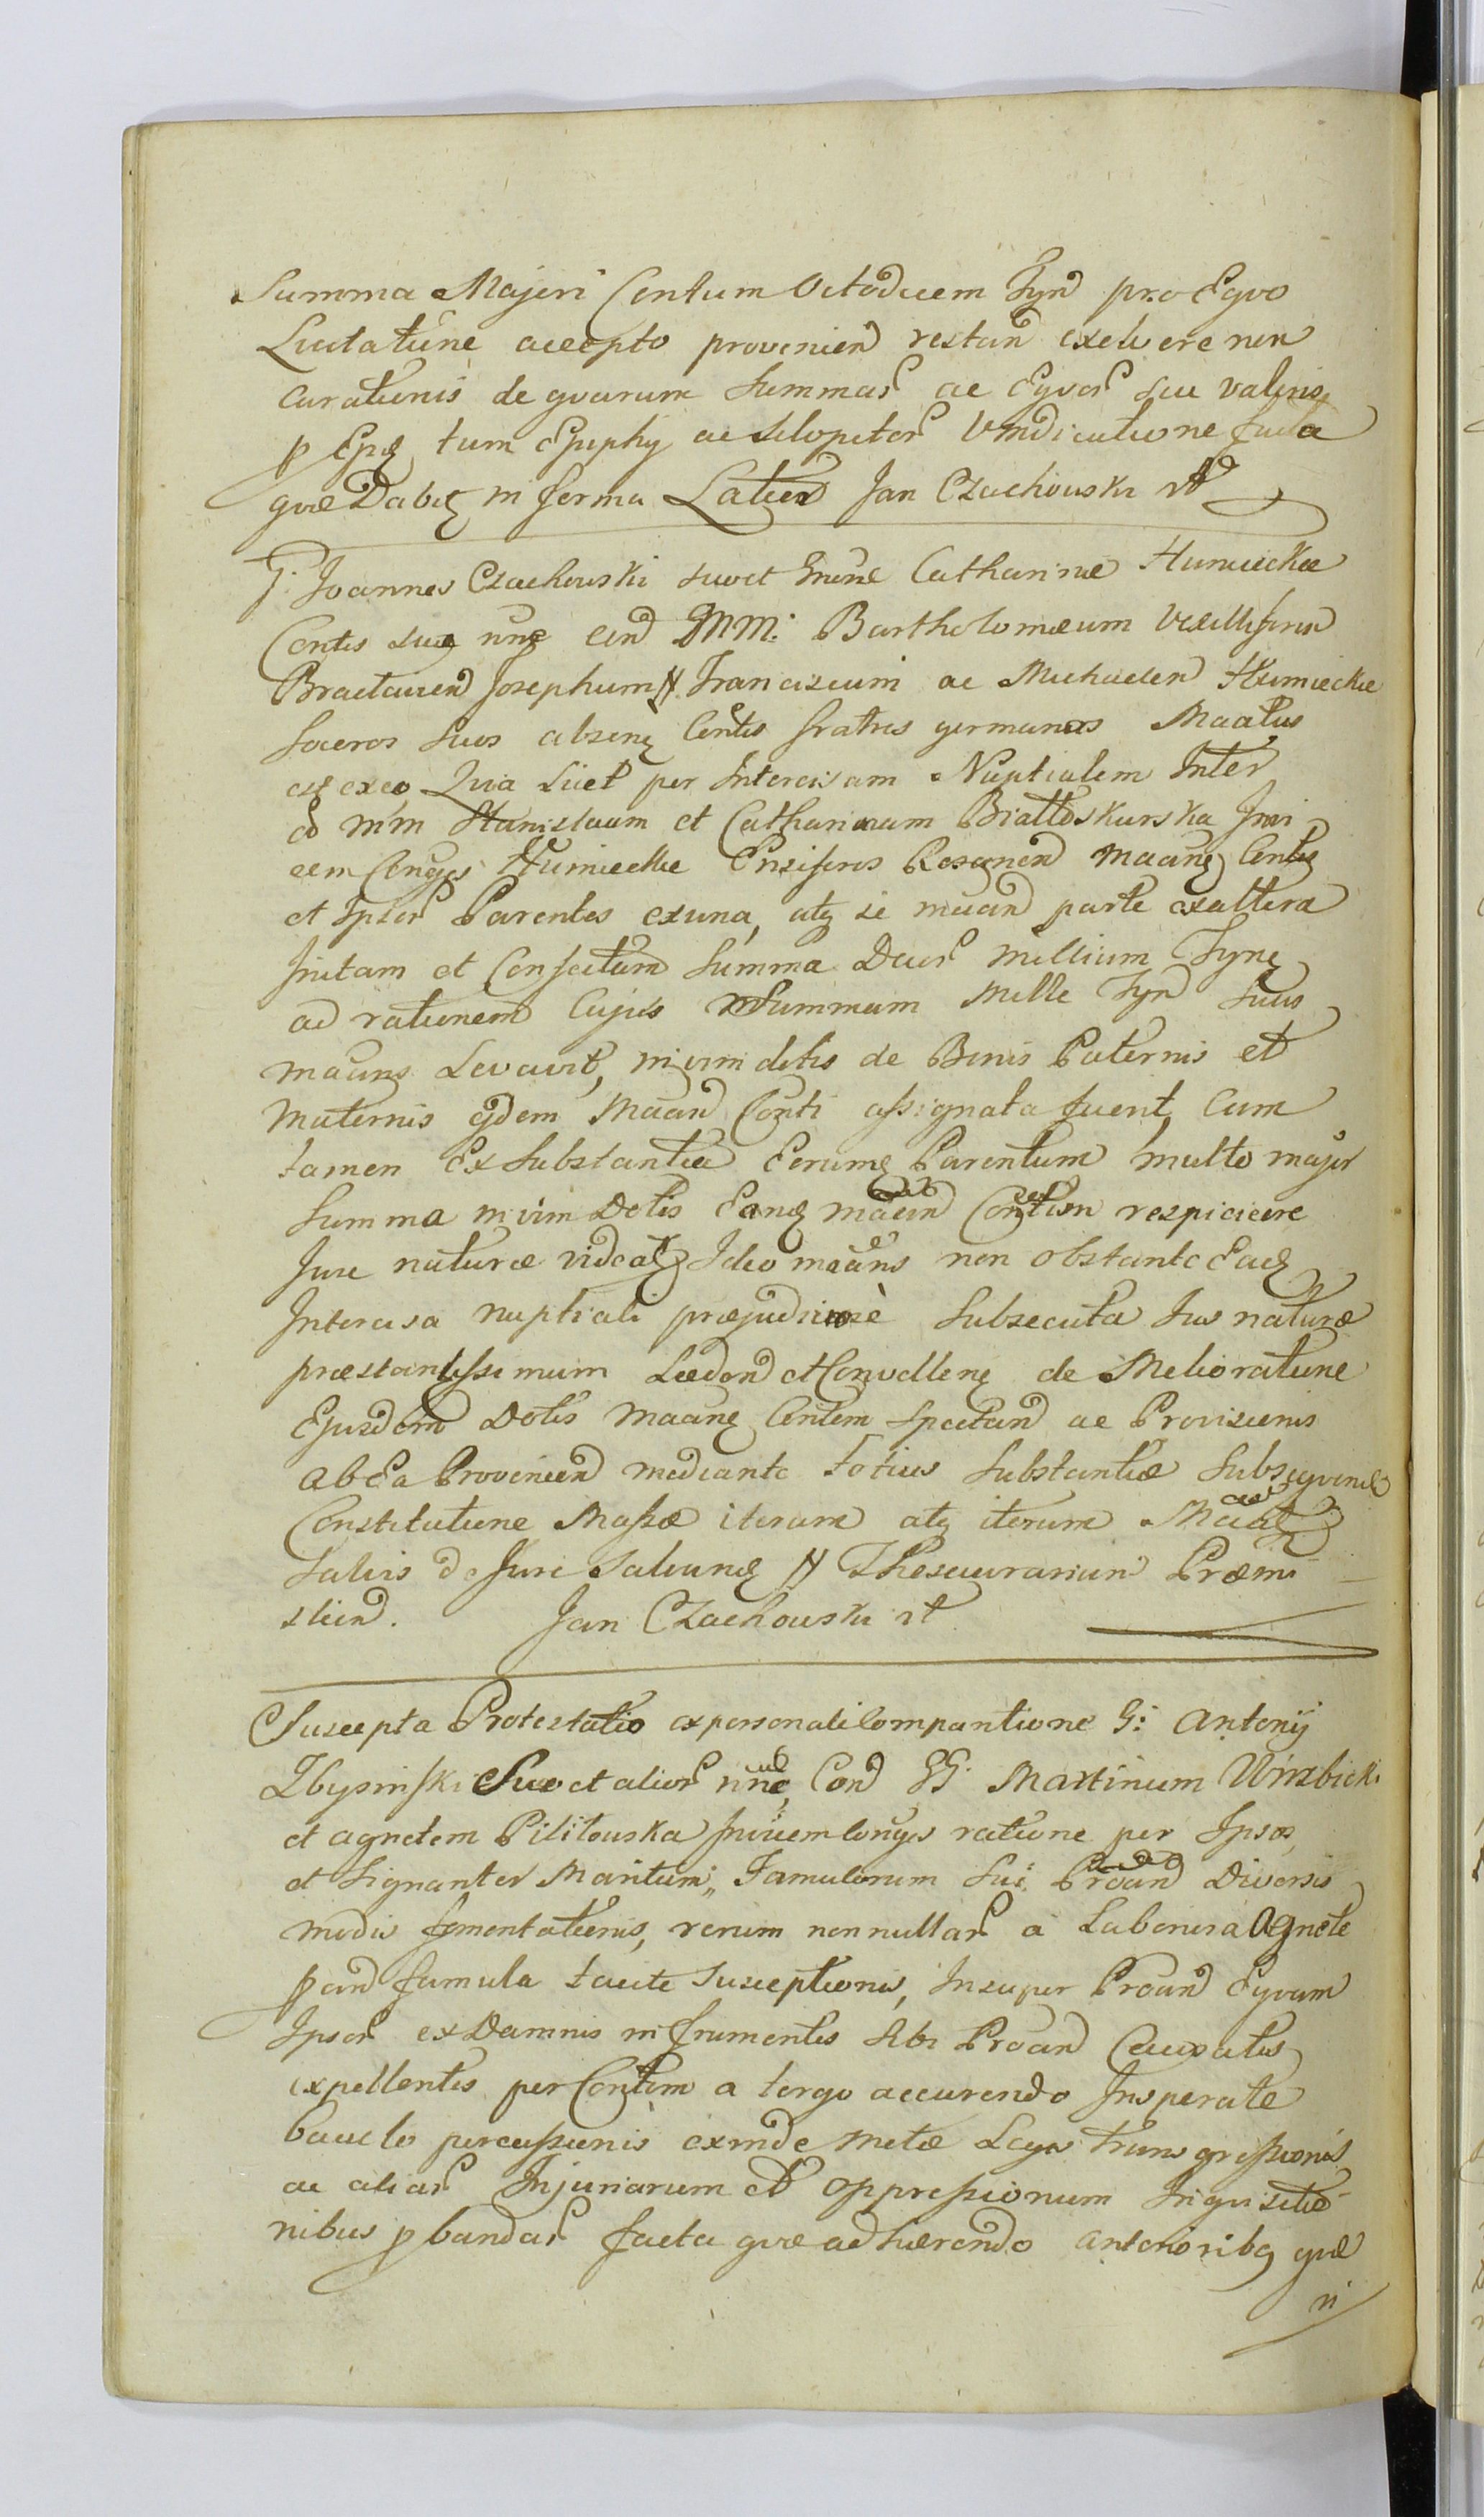 Summa Majori Centum Octodecem Fyn̄ pro Eqvo
Licitatione accepto provenien̄ restan̄ exolvere non
curationis de qvarum Summar̄ ac Eqvor̄ seu valoris
tum Ephiphÿ ac Sclopetor̄ Vindicatione facta
qvæ Dabit̄ in forma Latiori Jan Czachowski
G. Joannes Czachowski suo et Gn̄ne Catharinæ Humieckæ
Con̄tis suæ nn̄e con̄ MM. Bartholomæum Vexilliferum
Braclavien̄ Josephum N Franciscum ac Michaelem Humieckie
Soceros suos absen̄ Con̄tis fratres germanos Maātus
est ex eo Qvia Licet per Intercisam Nuptialem Inter
MM Stanislaum et Catharinam Biattoskurska Invi
cem Con̄ges Humieckie Ensiferos Rosanen̄ maan̄ Con̄tis
et Ipsor̄ Parentes ex una, atq̄ se māan̄ parte ex altera
Initam et Confectam Summa Duor̄ millium Fyn̄
ad rationem Cujus Summam Mille Fyn̄ suus
māans Levavit, in vim dotis de Bonis Paternis et
Maternis ejdem Māan̄ Con̄ti assignata fuerit, Cum
tamen Ex Substantia Eorum Parentum multo major
Summa in vim Dotis Ean̄ māan̄ Con̄tem respicere
Jure naturæ videat̄ Ideo māans non obstante Ead̄
Intercisa nuptiali præjudiciose Subsecuta Jus naturæ
præstantissimum Læden̄ et Convellen̄ de Melioratione
Ejusdem Dotis maan̄ Con̄tem Spectan̄ ac Provisionis
ab Ea Provenien̄ mediante totius Substantiæ Subseqvend̄
Constitutione Massæ iterum atq̄ iterum Māat̄
Salvis de Jure Salvand̄ N Thesaurarium Præmi
slien̄. Jan Czachowski
Suscepta Protestatio ex personali Comparitione G: Antonij
Zbysinski Suo et alior̄ nn̄e, Con̄ GG. Martinum Wirzbicki
et agnetem Pilitowska Invicem Con̄ges ratione per Ipsos
et Signanter Maritum, Famulorum Sui Proan̄ Diversis
modis fomentationis, rerum nonnullar̄ a Laboriosa Agnete
pan̄ famula tacite Susceptionis, Insuper Proan̄ Eqvum
Ipsor̄ ex Damnis in frumentis Sibi Proan̄ Causatis
expellentis per Con̄tem a tergo accurendo Insperate
baculo percussionis exinde metæ Legis transgressionis
ac aliar̄ Injuriarum et oppressionum Inqvisitio
nibus pbandar̄ facta qvæ adhærendo anterioribq̄ qvæ
n